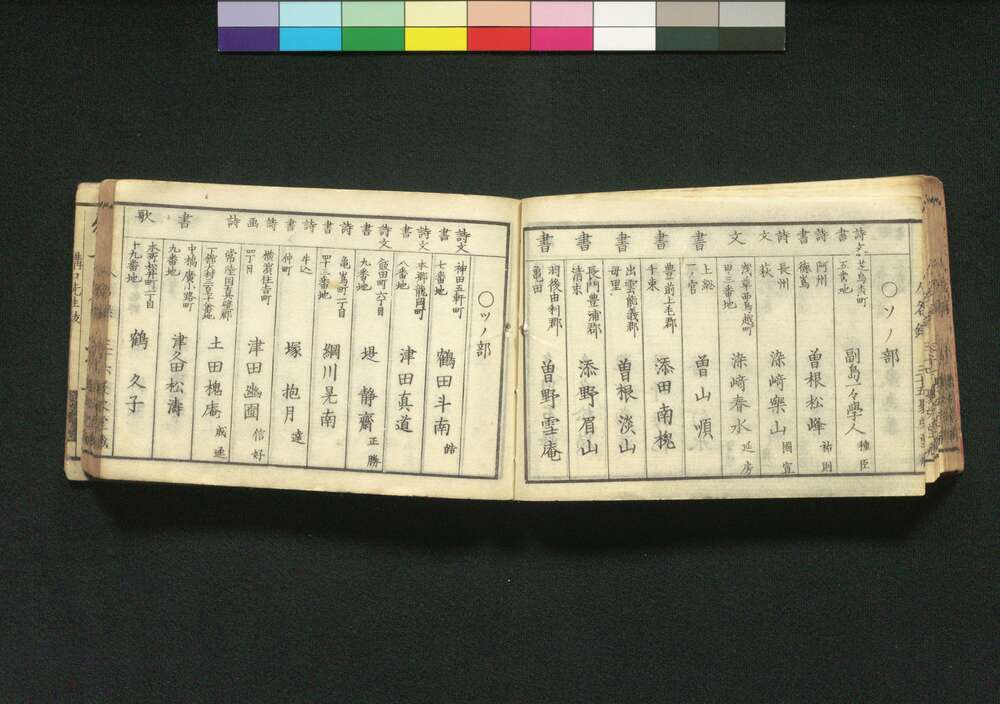 〇ソノ部
詩文書 芝烏森町五番地 副島一々學人 種臣
詩書 阿州徳嶌 曽根松峰 祐則
詩書 長州萩 染﨑樂山 國寛
文 浅草西鳥越町甲三番地 染﨑春水 延房
書 上総一ノ宮 曽山順
書 豊前上毛郡千束 添田南槐
書 出雲能義郡母里 曽根淡山
書 長門豊浦郡清末 添野眉山
書 羽後由利郡亀田 曽野雪庵
〇ツノ部
詩文書 神田五軒町七番地 鶴田斗南 皓
詩文書 本郷龍岡町八番地 津田真道
詩文書 飯田町六丁目九番地 堤静齋 正勝
詩書 亀嶌町二丁目四十三番地 綱川晃南
詩書 牛込仲町 塚抱月 達
詩畫 横濱住吉町四丁目 津田幽圃 信好
詩 常陸国真壁郡下館村三百十一番地 土田槐庵 成逹
書 中橋廣小路町九番地 津久田松濤
歌 本所松井町二丁目十九番地 鶴久子